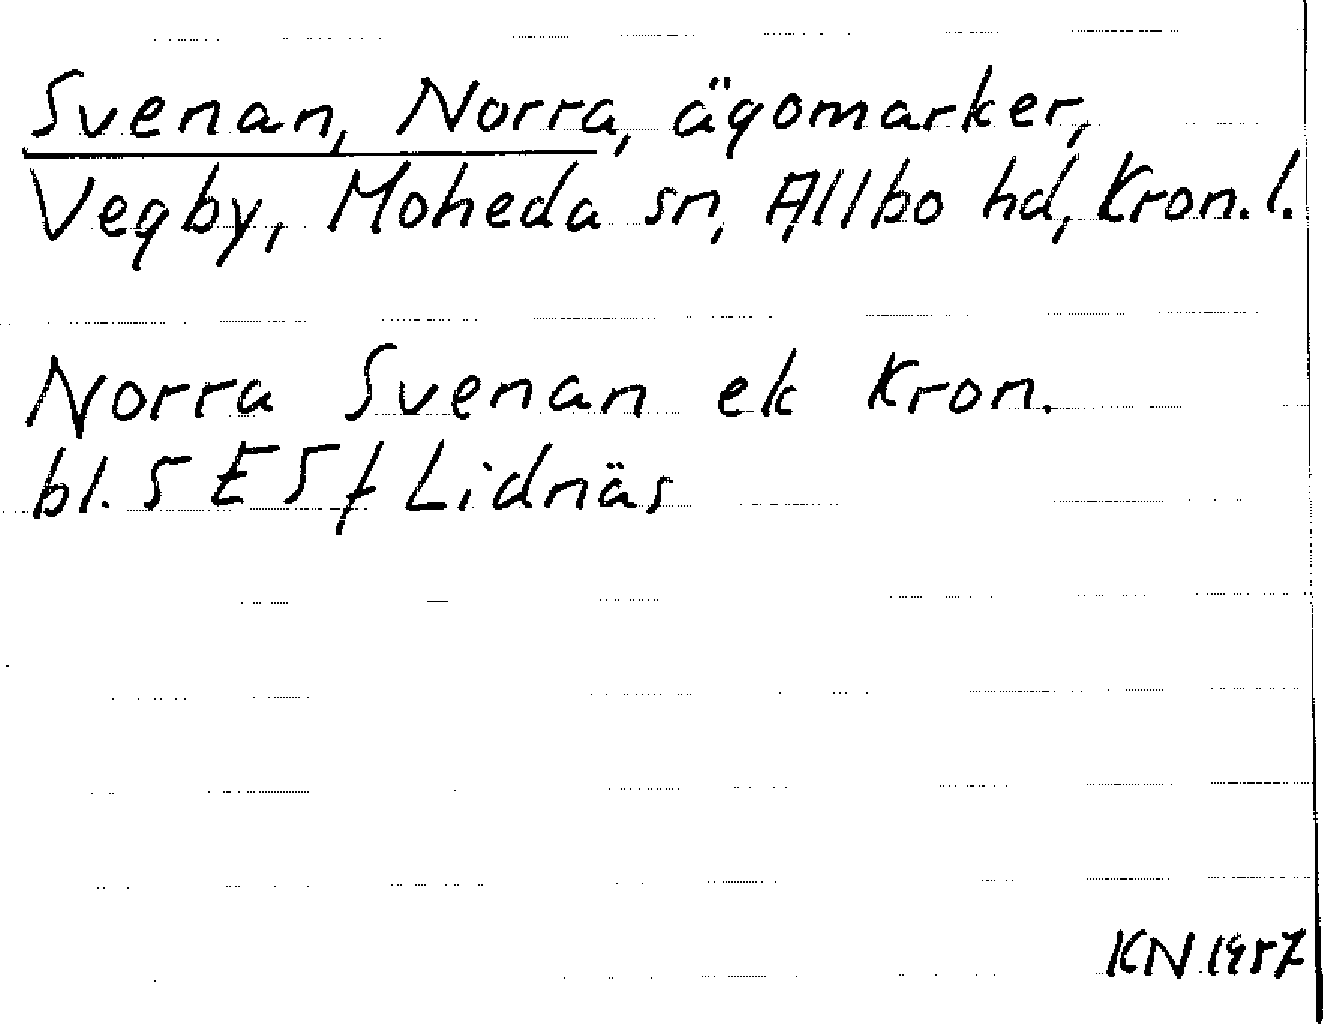 Svenan, Norra, ägomarker,
Vegby, Moheda sn, Allbo hd, Kron. l.
Norra Svenan ek Kron.
bl. 5 E 5 f Lidnäs
KN 1957